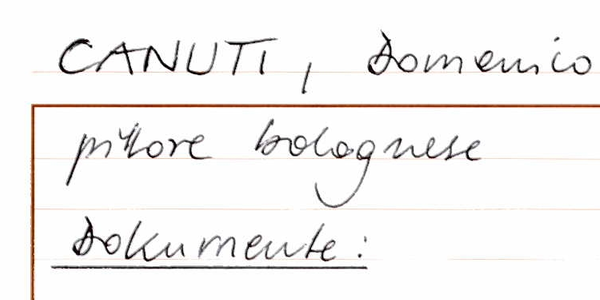 CANUTI, Domenico
pittore bolognese
Dokumente: